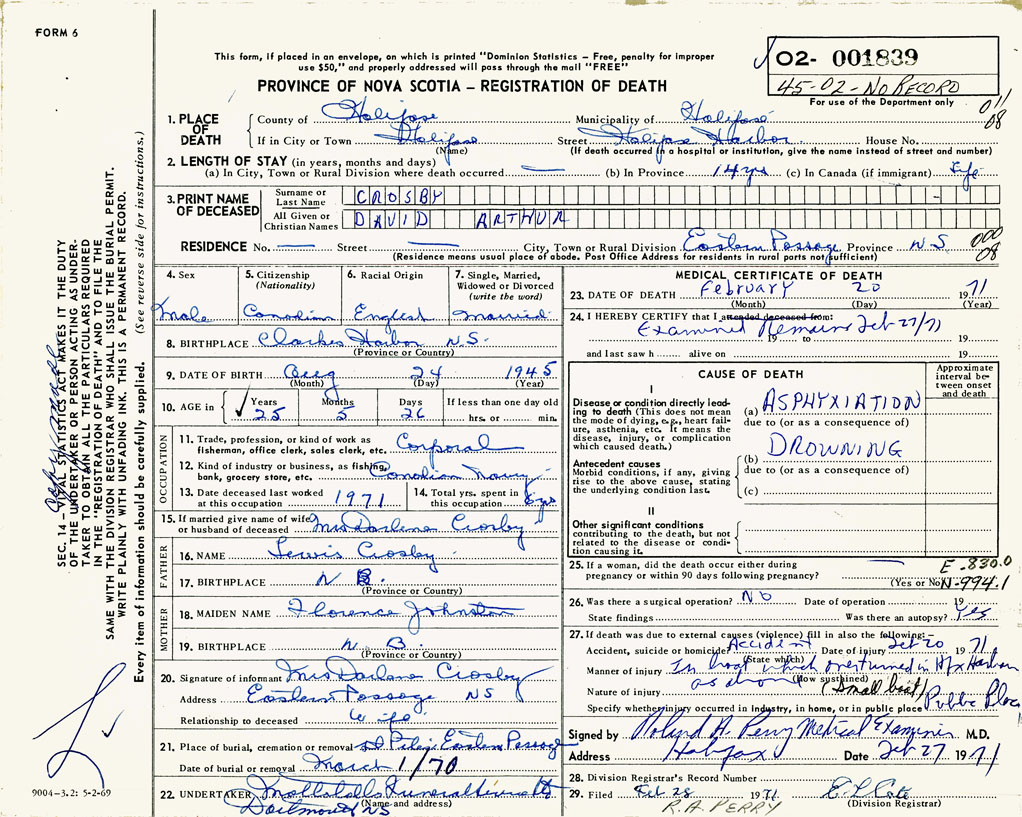 FORM 6
This form, if placed in an envelope, on which is printed "Dominion Statistics – Free, penalty for improper
use $50," and properly addressed will pass through the mail "FREE"
02- 001839
45-02-No RECORD
For use of the Department only
PROVINCE OF NOVA SCOTIA – REGISTRATION OF DEATH
011
08
1. PLACE OF DEATH
County of Halifax Municipality of Halifax
If in City or Town Halifax Street Halifax Harbor House No.
(Name) (If death occurred in a hospital or institution, give the name instead of street and number)
2. LENGTH OF STAY (in years, months and days)
(a) In City, Town or Rural Division where death occurred — (b) In Province 14 yrs (c) In Canada (if immigrant) Life
3. PRINT NAME OF DECEASED
Surname or Last Name CROSBY
All Given or Christian Names DAVID ARTHUR
RESIDENCE No. — Street — City, Town or Rural Division Eastern Passage Province N S
000
08
(Residence means usual place of abode. Post Office Address for residents in rural parts not sufficient)
4. Sex
Male
5. Citizenship (Nationality)
Canadian
6. Racial Origin
English
7. Single, Married, Widowed or Divorced (write the word)
Married
8. BIRTHPLACE Clarkes Harbor N.S.
(Province or Country)
9. DATE OF BIRTH Aug 24 1945
(Month) (Day) (Year)
10. AGE in Years Months Days If less than one day old
✓ 25 5 26 hrs. or min.
OCCUPATION
11. Trade, profession, or kind of work as
fisherman, office clerk, sales clerk, etc. Corporal
12. Kind of industry or business, as fishing,
bank, grocery store, etc. Canadian Navy
13. Date deceased last worked at this occupation 1971
14. Total yrs. spent in this occupation
15. If married give name of wife or husband of deceased Mrs Darlene Crosby
FATHER
16. NAME Lewis Crosby
17. BIRTHPLACE N B.
(Province or Country)
MOTHER
18. MAIDEN NAME Florence Johnston
19. BIRTHPLACE N. B.
(Province or Country)
20. Signature of informant Mrs Darlene Crosby
Address Eastern Passage NS
Relationship to deceased Wife
21. Place of burial, cremation or removal Eastern Passage
Date of burial or removal March 1/70
22. UNDERTAKER
(Name and address)
Dartmouth NS
MEDICAL CERTIFICATE OF DEATH
23. DATE OF DEATH February 20 1971
(Month) (Day) (Year)
24. I HEREBY CERTIFY that I attended deceased from:
Examined Remains Feb 27/71
19 to 19
and last saw h alive on 19
CAUSE OF DEATH
Approximate interval between onset and death
I
Disease or condition directly leading to death (This does not mean the mode of dying, e.g., heart failure, asthenia, etc. It means the disease, injury, or complication which caused death.)
(a) ASPHYXIATION
due to (or as a consequence of)
Antecedent causes
Morbid conditions, if any, giving rise to the above cause, stating the underlying condition last.
(b) DROWNING
due to (or as a consequence of)
(c)
II
Other significant conditions
contributing to the death, but not related to the disease or condition causing it.
25. If a woman, did the death occur either during
pregnancy or within 90 days following pregnancy? —
(Yes or No)
E-830.0
N-994.1
26. Was there a surgical operation? No Date of operation 19
State findings Was there an autopsy? Yes
27. If death was due to external causes (violence) fill in also the following:–
Accident, suicide or homicide Accident Date of injury Feb 20 1971
(State which)
Manner of injury In boat which overturned in Hfx Harbour
(How sustained)
Nature of injury as above (Small boat)
Specify whether injury occurred in industry, in home, or in public place Public Place
Signed by Roland A. Perry Medical Examiner M.D.
Address Halifax Date Feb 27 1971
28. Division Registrar's Record Number
29. Filed Feb 28 1971
(Division Registrar)
R.A. PERRY
SEC. 14 – VITAL STATISTICS ACT MAKES IT THE DUTY
OF THE UNDERTAKER OR PERSON ACTING AS UNDER-
TAKER TO OBTAIN ALL THE PARTICULARS REQUIRED
IN THE "REGISTRATION OF DEATH" AND TO FILE THE
SAME WITH THE DIVISION REGISTRAR WHO SHALL ISSUE THE BURIAL PERMIT.
WRITE PLAINLY WITH UNFADING INK. THIS IS A PERMANENT RECORD.
Every item of information should be carefully supplied. (See reverse side for instructions.)
9004-3.2: 5-2-69